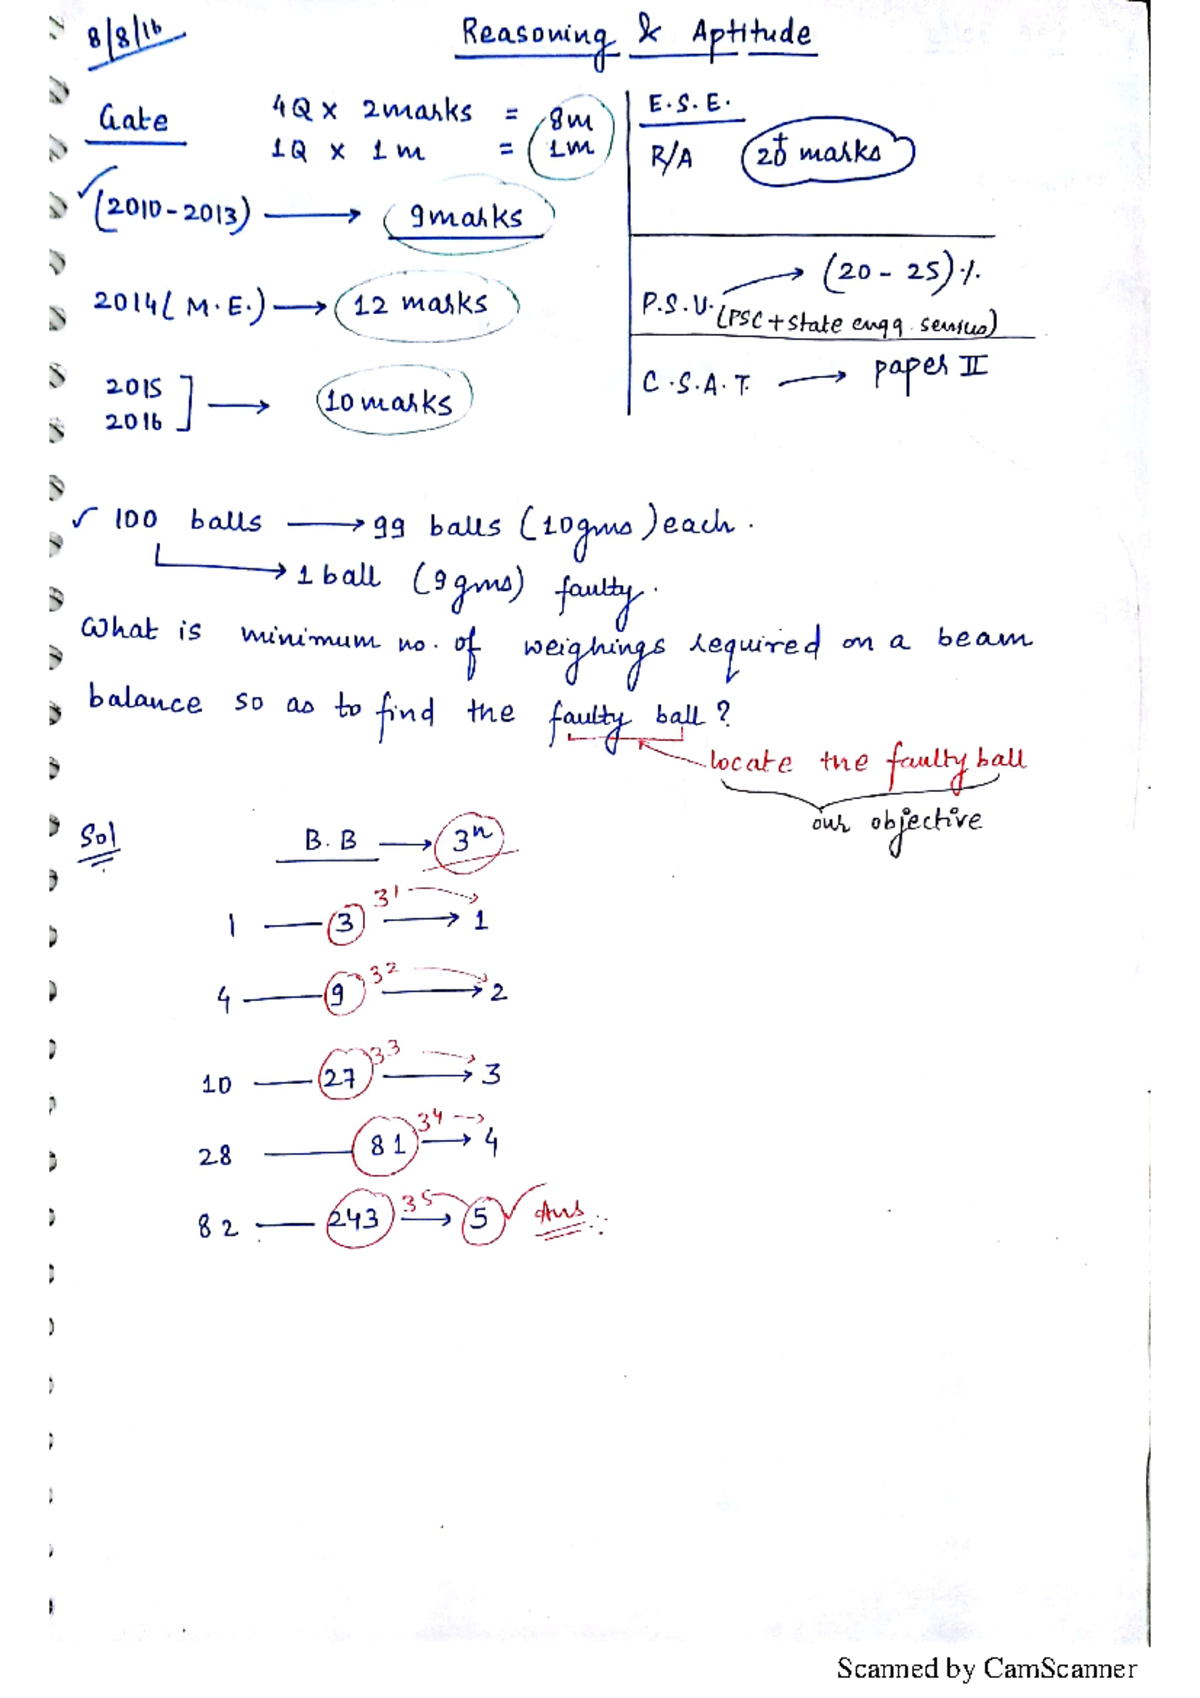 8/8/16
Reasoning & Aptitude
Gate
4Q x 2marks = 8m
1Q x 1m = 1m
(2010-2013) → 9marks
2014 ( M.E.) → 12 marks
2015
2016
] → 10 marks
E.S.E.
R/A marks
P.S.U. → (20 - 25)%.
(PSC + State engg.
C.S.A.T. → paper II
✓ 100 balls → 99 balls (10gms) each.
→ 1 ball (9gms) faulty.
What is minimum no. of weighings required on a beam
balance so as to find the faulty ball?
locate the faulty ball
our objective
Sol
B.B → 3ⁿ
1 — 3 3¹ → 1
4 — 9 3² → 2
10 — 27 3³ → 3
28 — 81 3⁴ → 4
82 — 243 3⁵ → 5 ✓ Ans
Scanned by CamScanner